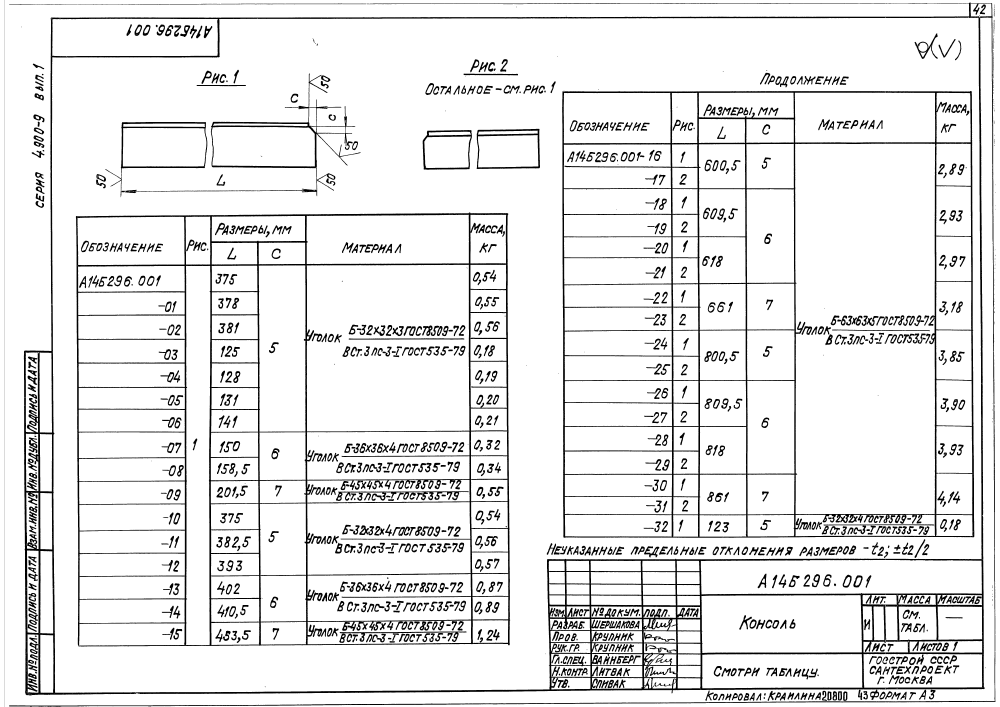 42
А14Б296.001
СЕРИЯ 4.900-9 ВЫП.1
Рис.1
50
С
С
50
50
L
50
Рис. 2
ОСТАЛЬНОЕ-СМ.РИС.1
(√)
ОБОЗНАЧЕНИЕ РИС. РАЗМЕРЫ, ММ МАТЕРИАЛ МАССА, КГ
L С
А14Б296.001 1 375 5 Уголок Б-32х32х3 ГОСТ 8509-72 / В Ст.3пс-3-I ГОСТ 535-79 0,54
-01 378 0,55
-02 381 0,56
-03 125 0,18
-04 128 0,19
-05 131 0,20
-06 141 0,21
-07 150 6 Уголок Б-36х36х4 ГОСТ 8509-72 / В Ст.3пс-3-I ГОСТ 535-79 0,32
-08 158,5 0,34
-09 201,5 7 Уголок Б-45х45х4 ГОСТ 8509-72 / В Ст.3пс-3-I ГОСТ 535-79 0,55
-10 375 5 Уголок Б-32х32х4 ГОСТ 8509-72 / В Ст.3пс-3-I ГОСТ 535-79 0,54
-11 382,5 0,56
-12 393 0,57
-13 402 6 Уголок Б-36х36х4 ГОСТ 8509-72 / В Ст.3пс-3-I ГОСТ 535-79 0,87
-14 410,5 0,89
-15 453,5 7 Уголок Б-45х45х4 ГОСТ 8509-72 / В Ст.3пс-3-I ГОСТ 535-79 1,24
ПРОДОЛЖЕНИЕ
ОБОЗНАЧЕНИЕ РИС. РАЗМЕРЫ, ММ МАТЕРИАЛ МАССА, КГ
L С
А14Б296.001-16 1 600,5 5 Уголок Б-63х63х5 ГОСТ 8509-72 / В Ст.3пс-3-I ГОСТ 535-79 2,89
-17 2
-18 1 609,5 6 2,93
-19 2
-20 1 618 2,97
-21 2
-22 1 661 7 3,18
-23 2
-24 1 800,5 5 3,85
-25 2
-26 1 809,5 6 3,90
-27 2
-28 1 818 3,93
-29 2
-30 1 861 7 4,14
-31 2
-32 1 123 5 Уголок Б-32х32х4 ГОСТ 8509-72 / В Ст.3пс-3-I ГОСТ 535-79 0,18
НЕУКАЗАННЫЕ ПРЕДЕЛЬНЫЕ ОТКЛОНЕНИЯ РАЗМЕРОВ -t2; ±t2/2
А14Б296.001
ИЗМ. ЛИСТ № ДОКУМ. ПОДП. ДАТА
РАЗРАБ. ШЕРШАКОВА
ПРОВ. КРУПНИК
РУК.ГР. КРУПНИК
ГЛ.СПЕЦ. ВАЙНБЕРГ
Н.КОНТР. ЛИТВАК
УТВ. СПИВАК
КОНСОЛЬ
ЛИТ. МАССА МАСШТАБ
И СМ. ТАБЛ. —
ЛИСТ ЛИСТОВ 1
СМОТРИ ТАБЛИЦУ.
ГОССТРОЙ СССР
САНТЕХПРОЕКТ
Г. МОСКВА
КОПИРОВАЛ: КРАИЛИНА 20800 43 ФОРМАТ А3
ИНВ.№ПОДЛ. ПОДПИСЬ И ДАТА ВЗАМ.ИНВ.№ ИНВ.№ДУБЛ. ПОДПИСЬ И ДАТА